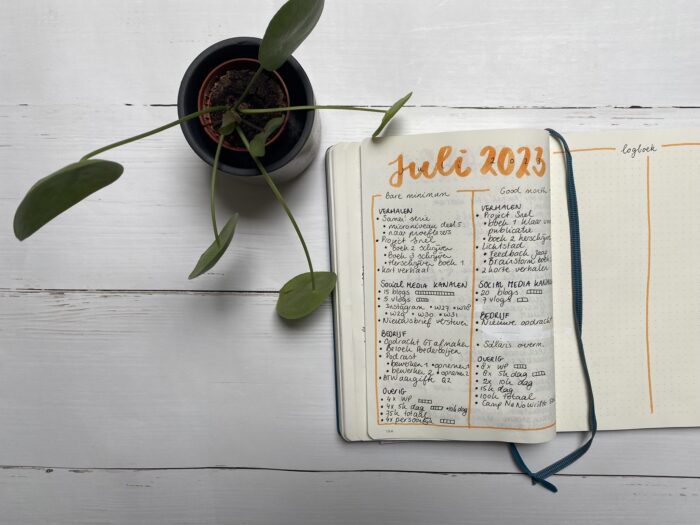 Juli 2023
logboek
Bare minimum
VERHALEN
• Samei serie
• micronivootje deel 5
• naar proeflezers
• Project Snel
• Boek 2 schrijven
• Boek 3 schrijven
• Herschrijven boek 1
• kort verhaal
SOCIAL MEDIA KANALEN
• 15 blogs
• 5 vlogs
• Instagram • W27 • W28
• W29 • W30 • W31
• Nieuwsbrief versturen
BEDRIJF
• Opdracht GT afmaken
• Bezoek
• Podcast
• bewerken 1 • opnemen 1
• bewerken 2 • opnemen 2
• BTW aangifte Q2
OVERIG
• 4x WP
• 4x 5k dag • 10k dag
• 75k totaal
• 4x persoonlijk
Good month
VERHALEN
• Project Snel
• boek 1 klaar voor
publicatie
• boek 2 herschrijven
• Lichtstad
• Feedback
• Brainstorm boek
• 2 korte verhalen
SOCIAL MEDIA KANALEN
• 20 blogs
• 7 vlogs
BEDRIJF
• Nieuwe opdracht
• Sdlaris overm.
OVERIG
• 8x WP
• 8x 5k dag
• 2x 10k dag
• 15k dag
• 100k totaal
• Camp NaNoWriMo